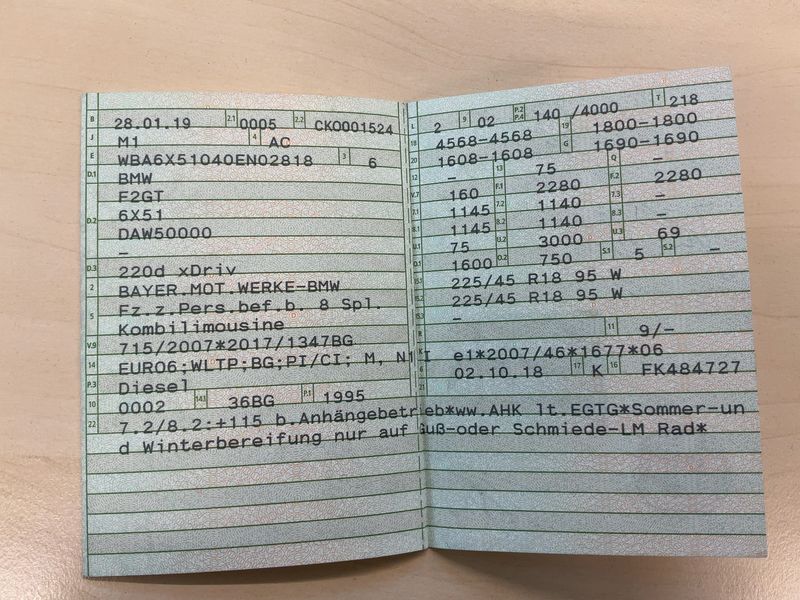 B 28.01.19 2.1 0005 2.2 CK0001524
J M1 4 AC
E WBA6X51040EN02818 3 6
D.1 BMW
F2GT
D.2 6X51
DAW50000
–
D.3 220d xDriv
2 BAYER.MOT.WERKE-BMW
5 Fz.z.Pers.bef.b. 8 Spl.
Kombilimousine
V.9 715/2007*2017/1347BG
14 EURO6;WLTP;BG;PI/CI; M, N1 I
P.3 Diesel
10 0002 14.1 36BG P.1 1995
22 7.2/8.2:+115 b.Anhängebetrieb*ww.AHK lt.EGTG*Sommer-un
d Winterbereifung nur auf Guß-oder Schmiede-LM Rad*
L 2 9 02 P.2 P.4 140 /4000 T 218
18 4568-4568 19 1800-1800
20 1608-1608 G 1690-1690
– 13 75 Q –
V.7 160 F.1 2280 F.2 2280
7.1 1145 7.2 1140 7.3 –
8.1 1145 8.2 1140 8.3 –
U.1 75 U.2 3000 U.3 69
O.1 1600 O.2 750 S.1 5 S.2 –
15.1 225/45 R18 95 W
15.2 225/45 R18 95 W
15.3 –
R 11 9/–
K e1*2007/46*1677*06
6 02.10.18 17 K 16 FK484727
21